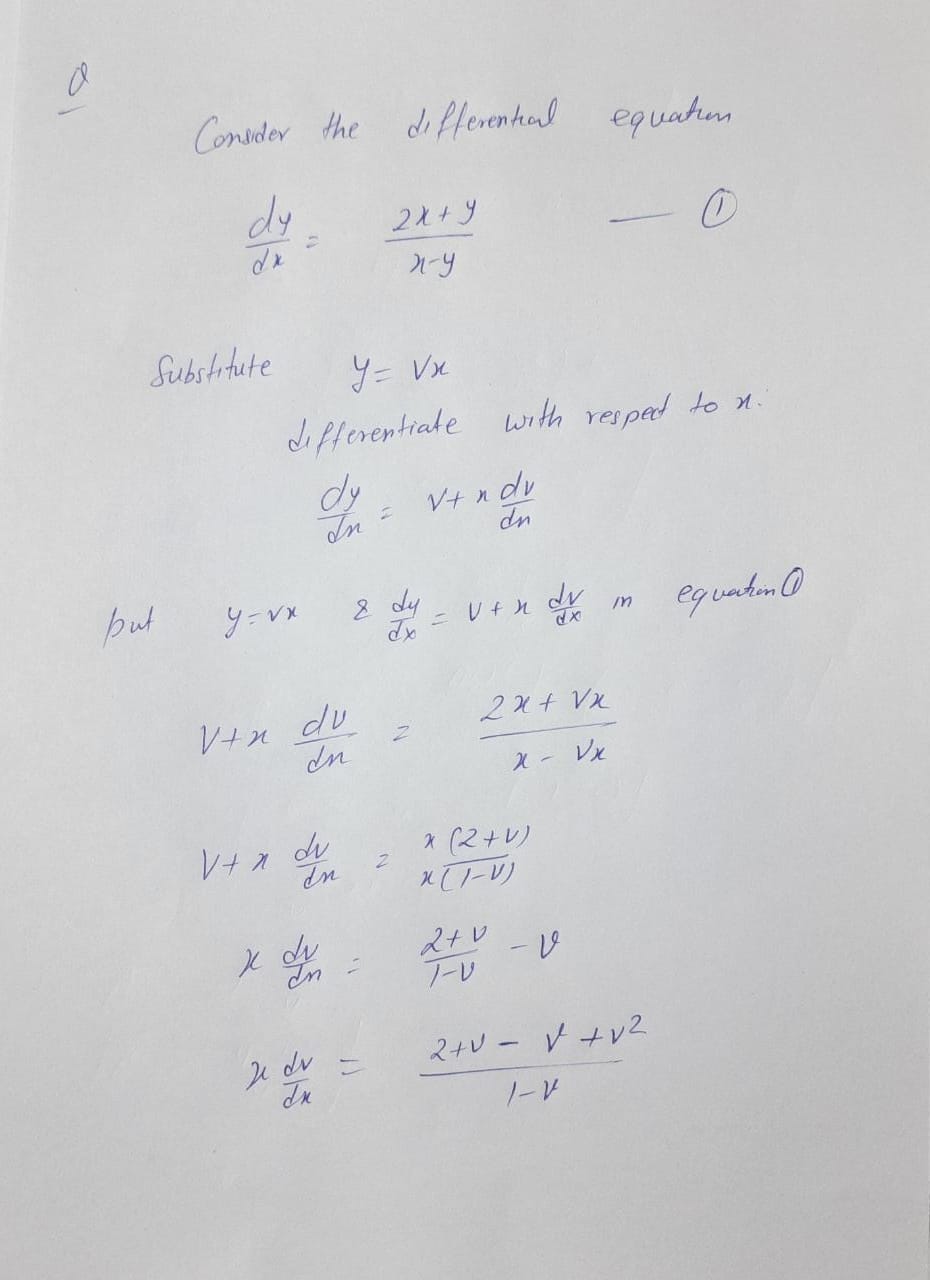 Q
Consider the differential equation
dy/dx = 2x+y / x-y — ①
Substitute y = vx
differentiate with respect to x.
dy/dx = v+x dv/dx
put y=vx & dy/dx = v+x dv/dx in equation ①
v+x dv/dx = 2x+vx / x-vx
v+x dv/dx = x(2+v) / x(1-v)
x dv/dx = 2+v / 1-v - v
x dv/dx = 2+v-v+v² / 1-v